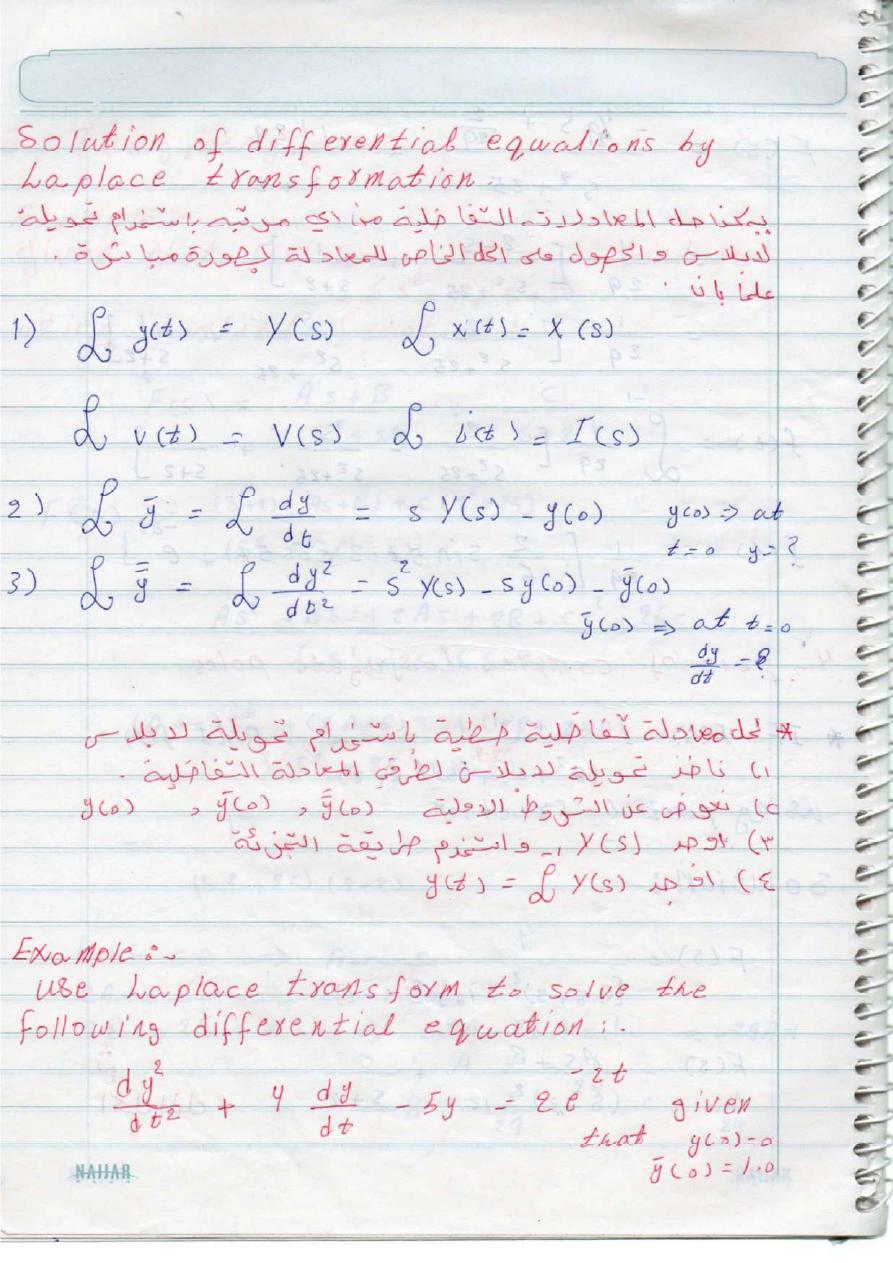 Solution of differential equations by
Laplace transformation.
يمكننا حل المعادلات التفاضلية من اي مرتبه باستخدام تحويلة
لابلاس والحصول على الحل الخاص للمعادلة بصورة مباشرة .
علماً بان .
1) ℒ y(t) = Y(s) ℒ x(t) = X(s)
ℒ v(t) = V(s) ℒ i(t) = I(s)
2) ℒ ȳ = ℒ dy/dt = s Y(s) - y(0) y(0) => at
t=0 y=?
3) ℒ ȳ̄ = ℒ dy²/dt² = s² Y(s) - s y(0) - ȳ(0)
ȳ(0) => at t=0
dy/dt = ?
* لحل معادلة تفاضلية خطية باستخدام تحويلة لابلاس
١) ناخذ تحويلة لابلاس لطرفي المعادلة التفاضلية .
٢) نعوض عن الشروط الاولية y(0) , ȳ(0) , ȳ̄(0)
٣) اوجد Y(s) واستخدم طريقة التجزئة
٤) اوجد y(t) = ℒ Y(s)
Example :-
Use Laplace transform to solve the
following differential equation :.
dy²/dt² + 4 dy/dt - 5y = 2 e^-2t given
that y(0)=0
ȳ(0) = 1.0
NAHAR